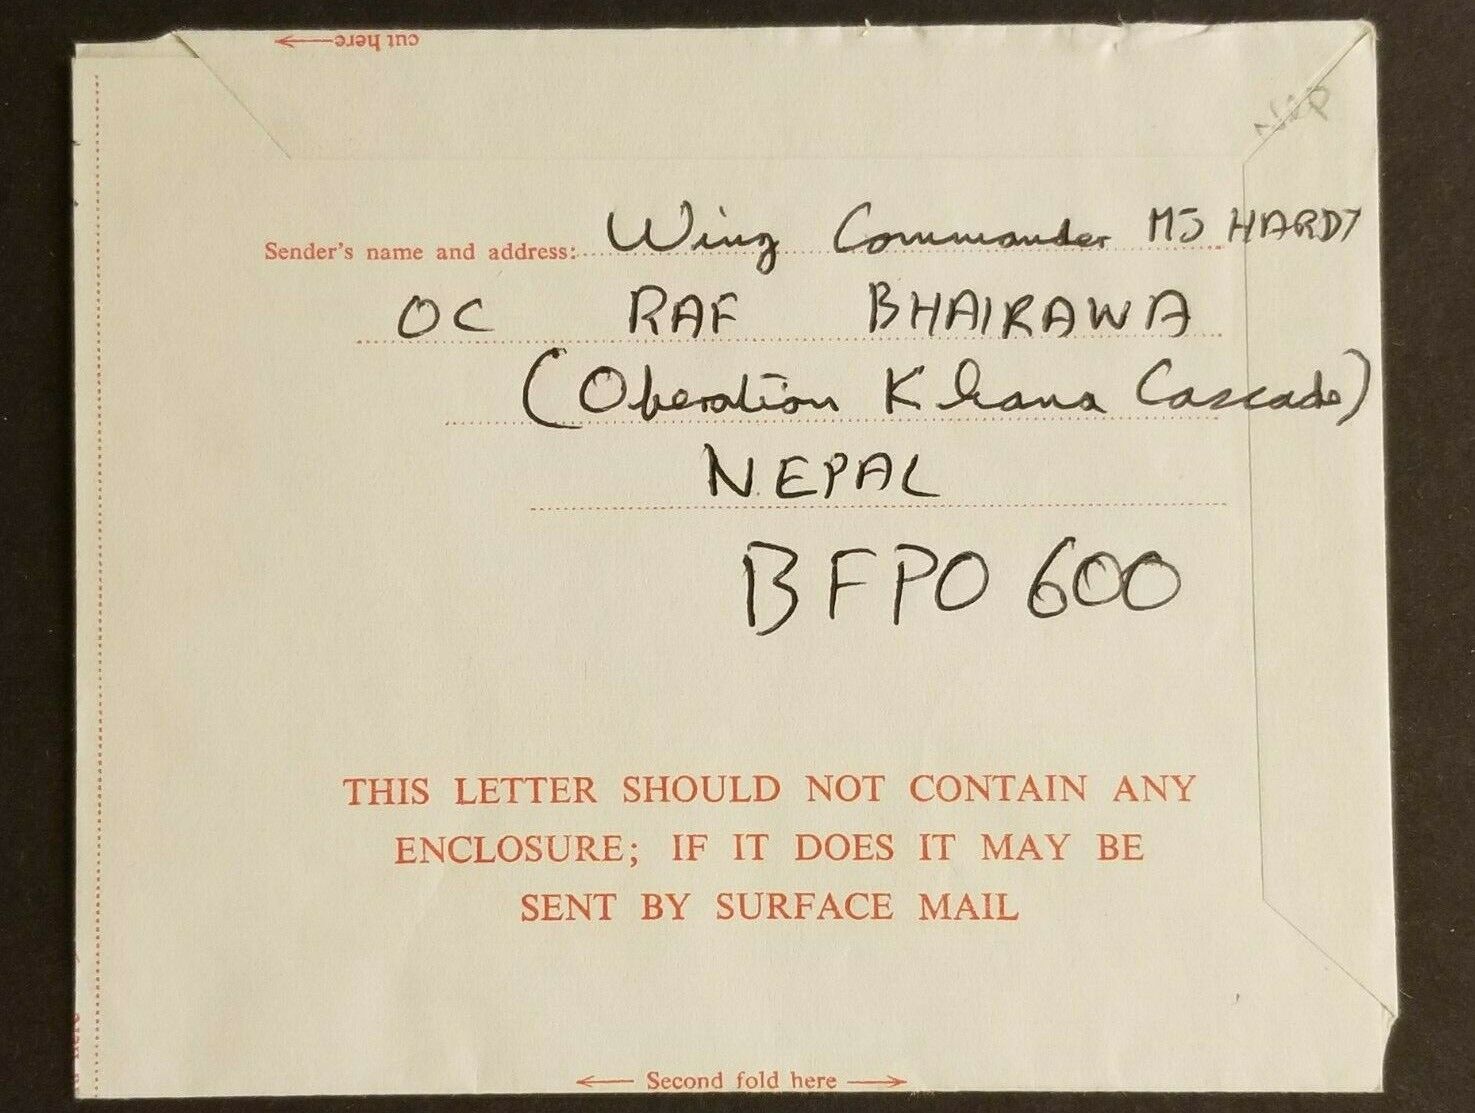 cut here
Sender's name and address: Wing Commander MJ HARDY
OC RAF BHAIRAWA
(Operation Khana Cascade)
NEPAL
BFPO 600
THIS LETTER SHOULD NOT CONTAIN ANY
ENCLOSURE; IF IT DOES IT MAY BE
SENT BY SURFACE MAIL
Second fold here